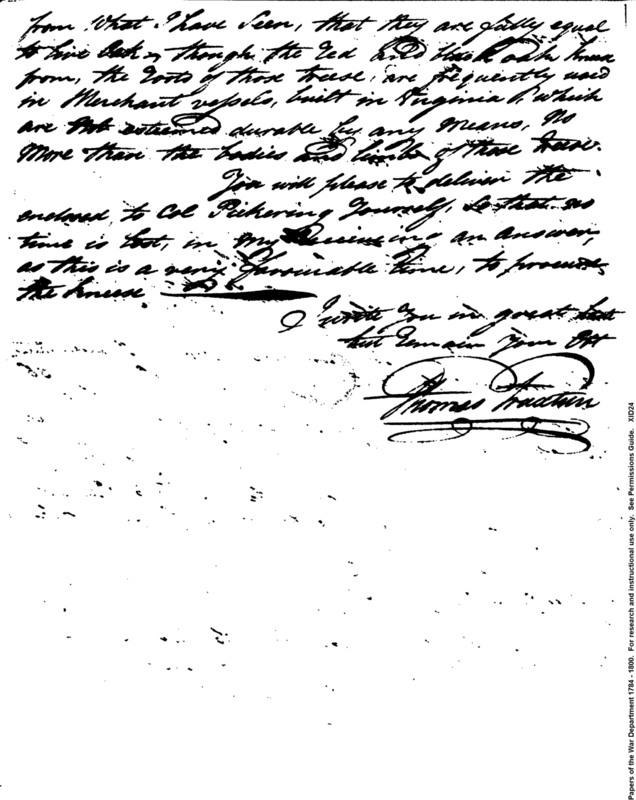 from What I have Seen, that they are fully equal
to live Oak, though the Red and black oak knees
from, the roots of those treese, are frequently used
in Merchant vessels, built in Virginia &, which
are Not esteemed durable by any Means, No
More than the bodies and limbs of those treese.
You will please to deliver the
enclosed, to Col Pickering Yourself, So that no
time is lost, in my Receiveing an answer,
as this is a very favourable time, to procure
the kneese
I write You in great
but Remain Your
Thomas
Papers of the War Department 1784 - 1800. For research and instructional use only. See Permissions Guide. XID24